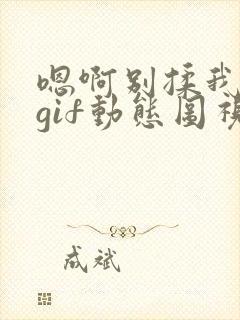 嗯啊别揉我
gif動態圖視
成斌